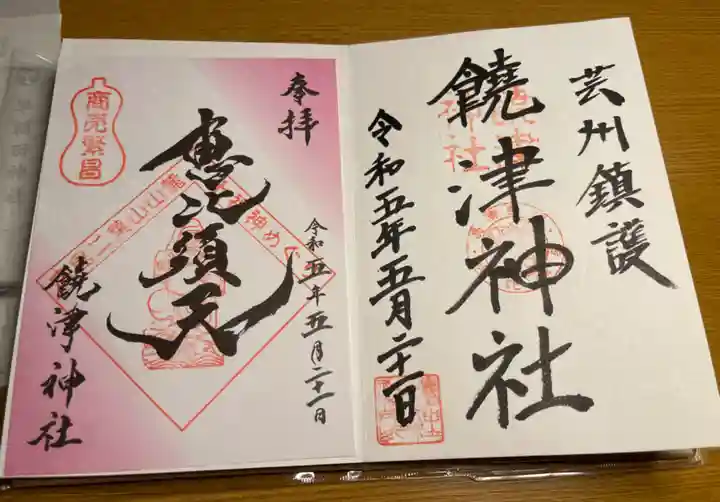 芸州鎮護
饒津神社
令和五年五月二十一日
奉拝
恵比須天
令和五年五月二十一日
饒津神社
商売繁昌
二葉山山麓